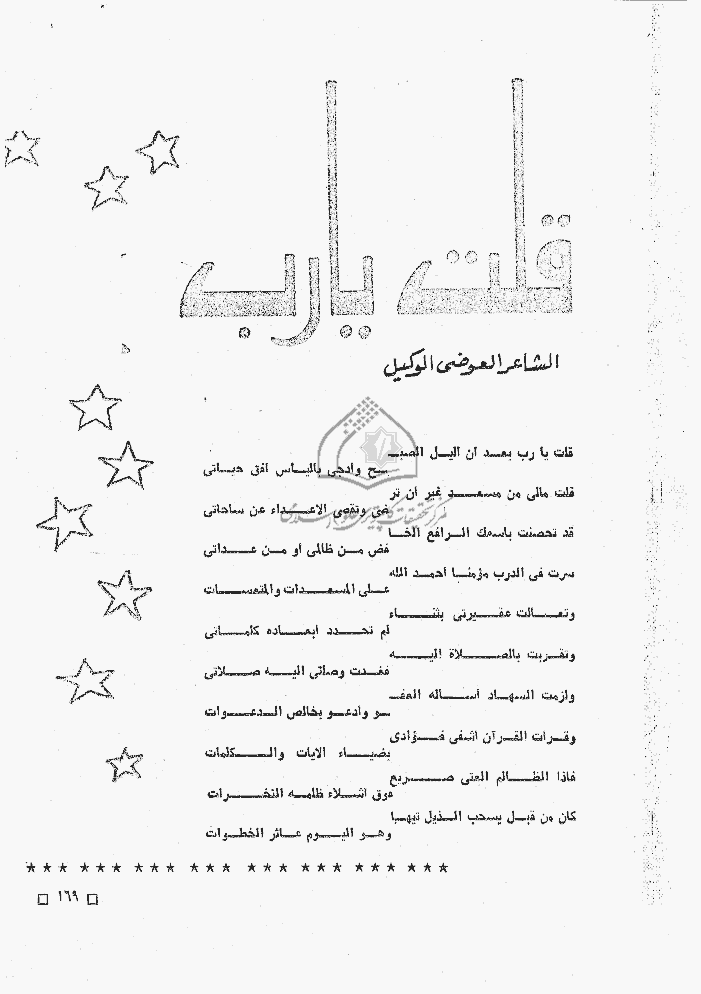 قلت يارب
الشاعر العوضى الوكيل
قلت يا رب بعد ان اليل الصبـ
ـح وادجى بالياس افق حياتى
قلت مالى من مسعد غير ان تر
ضى وتقصى الاعداء عن ساحاتى
قد تحصنت باسمك الرافع الخا
فض من ظالمى او من عداتى
سرت فى الدرب مؤمنا احمد الله
على المسعدات والمتعسات
وتعالت عقيرتى بثناء
لم تحدد ابعاده كلماتى
وتقربت بالصلاة اليه
فغدت وصلتى اليه صلاتى
ولزمت السهاد اساله العفـ
ـو وادعو بخالص الدعوات
وقرات القرآن اشفى فؤادى
بضياء الايات والكلمات
فاذا الظالم العتى صريع
فوق اشلاء ظلمه النخرات
كان من قبل يسحب الذيل تيها
وهو اليوم عاثر الخطوات
★★★ ★★★ ★★★ ★★★ ★★★ ★★★ ★★★ ★★★
□ ١٦٩ □